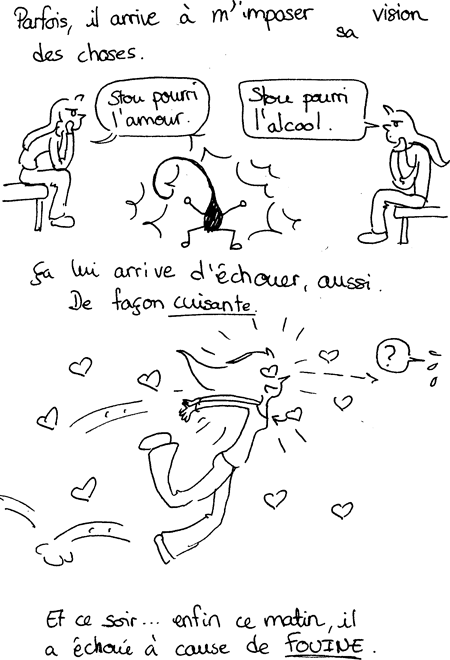 Parfois, il arrive à m'imposer sa vision
des choses.
Stou pourri
l'amour.
Stou pourri
l'alcool.
Ça lui arrive d'échouer, aussi.
De façon cuisante.
?
Et ce soir... enfin ce matin, il
a échoué à cause de FOUINE.